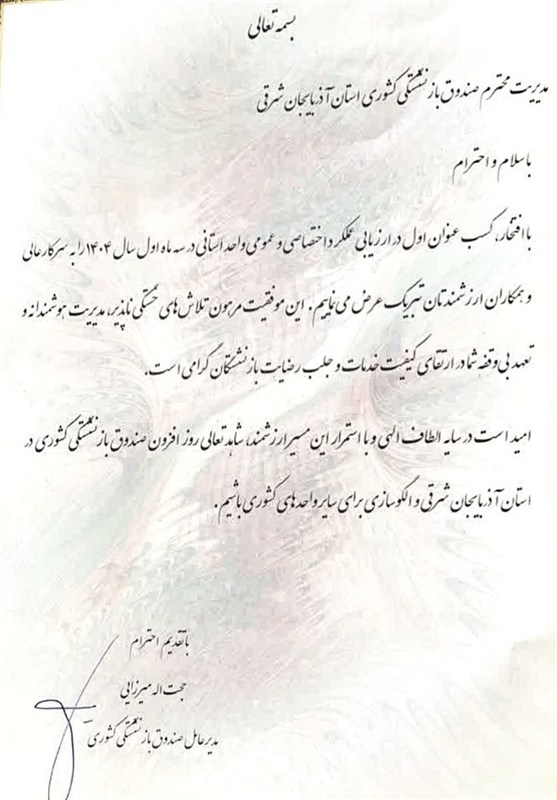 بسمه تعالی
مدیریت محترم صندوق بازنشستگی کشوری استان آذربایجان شرقی
با سلام و احترام
با افتخار، کسب عنوان اول در ارزیابی عملکرد اختصاصی و عمومی واحد استانی در سه ماه اول سال ۱۴۰۴ را به سرکار عالی
و همکاران ارزشمندتان تبریک عرض می نماییم. این موفقیت مرهون تلاش های خستگی ناپذیر، مدیریت هوشمندانه و
تعهد بی وقفه شما در ارتقای کیفیت خدمات و جلب رضایت بازنشستگان گرامی است.
امید است در سایه الطاف الهی و با استمرار این مسیر ارزشمند، شاهد تعالی روز افزون صندوق بازنشستگی کشوری در
استان آذربایجان شرقی و الگوسازی برای سایر واحدهای کشوری باشیم.
با تقدیم احترام
حجت اله میرزایی
مدیرعامل صندوق بازنشستگی کشوری